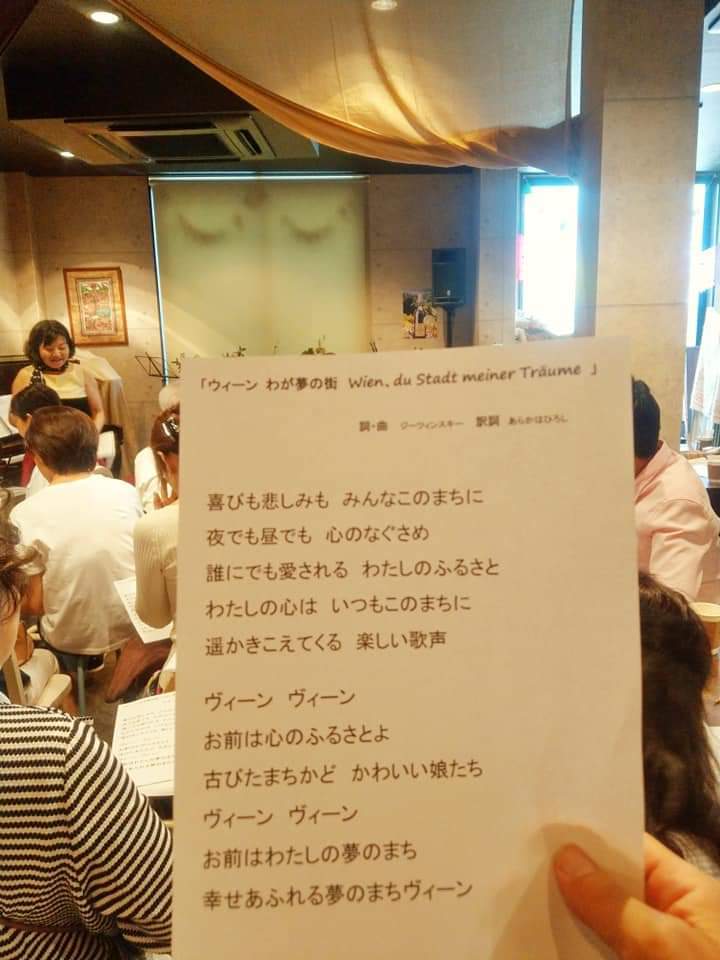 「ウィーン わが夢の街 Wien, du Stadt meiner Träume 」
詞・曲 ジーツィンスキー 訳詞 あらかはひろし
喜びも悲しみも みんなこのまちに
夜でも昼でも 心のなぐさめ
誰にでも愛される わたしのふるさと
わたしの心は いつもこのまちに
遥かきこえてくる 楽しい歌声
ヴィーン ヴィーン
お前は心のふるさとよ
古びたまちかど かわいい娘たち
ヴィーン ヴィーン
お前はわたしの夢のまち
幸せあふれる夢のまちヴィーン